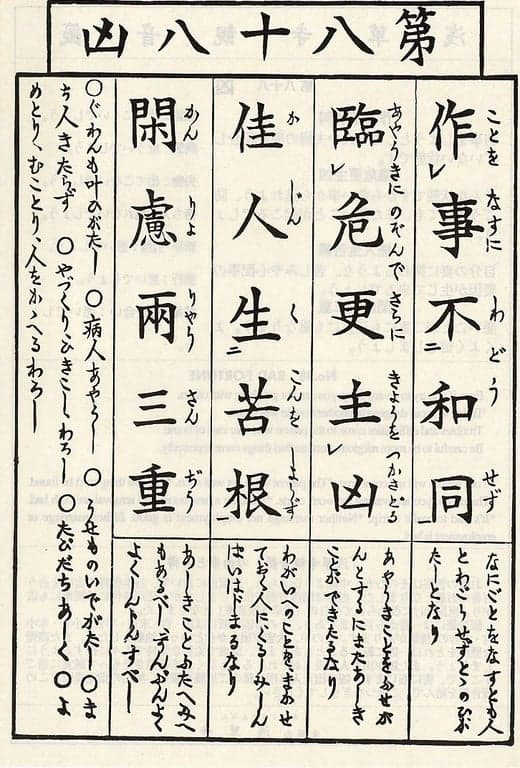 第八十八凶
作事不和同
ことを なすに わどう せず
臨危更主凶
あやうきにのぞんで さらに きょうを
佳人生苦根
か じん く こんを しょうず
閑慮兩三重
かん りょ りやう さん ぢう
なにごとをなすとも人
とわごう せず
たしとなり
あやうきことをふせが
んとするにまたあしき
ことができたるなり
わがいへのことをまかせ
ておく人にくるしみしん
はいはじまるなり
あしきことふたへみへ
もあるべしずゐぶんよく
よくしんじんすべし
〇ぐわんも叶ひがたし 〇病人あやうし 〇うせものいでがたし 〇ま
ち人きたらず 〇やづくり、ひきこし、わろし 〇たびだちあしく 〇よ
めとり、むことり、人をかゝへるわろし